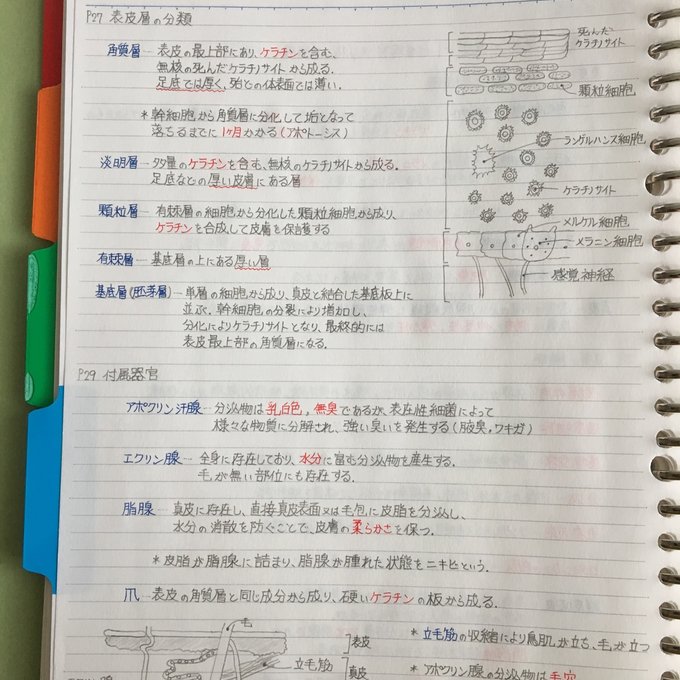 P27 表皮層の分類
角質層 … 表皮の最上部にあり、ケラチンを含む、
無核の死んだケラチノサイトから成る.
足底では厚く、殆どの体表面では薄い.
* 幹細胞から角質層に分化して垢となって
落ちるまでに1ヶ月かかる(アポトーシス)
淡明層 … 多量のケラチンを含む、無核のケラチノサイトから成る.
足底などの厚い皮膚にある層
顆粒層 … 有棘層の細胞から分化した顆粒細胞から成り、
ケラチンを合成して皮膚を保護する
有棘層 … 基底層の上にある厚い層
基底層(胚芽層) … 単層の細胞から成り、真皮と結合した基底板上に
並ぶ. 幹細胞の分裂により増加し、
分化によりケラチノサイトとなり、最終的には
表皮最上部の角質層になる.
死んだ
ケラチノサイト
顆粒細胞
ランゲルハンス細胞
ケラチノサイト
メルケル細胞
メラニン細胞
感覚神経
P29 付属器官
アポクリン汗腺 … 分泌物は乳白色, 無臭であるが、表在性細菌によって
様々な物質に分解され、強い臭いを発生する(腋臭, ワキガ)
エクリン腺 … 全身に存在しており、水分に富む分泌物を産生する.
毛が無い部位にも存在する.
脂腺 … 真皮に存在し、直接真皮表面又は毛包に皮脂を分泌し、
水分の消散を防ぐことで、皮膚の柔らかさを保つ.
* 皮脂が脂腺に詰まり、脂腺が腫れた状態をニキビという.
爪 … 表皮の角質層と同じ成分から成り、硬いケラチンの板から成る.
毛
表皮
立毛筋
真皮
* 立毛筋の収縮により鳥肌が立ち、毛が立つ
* アポクリン腺の分泌物は毛穴